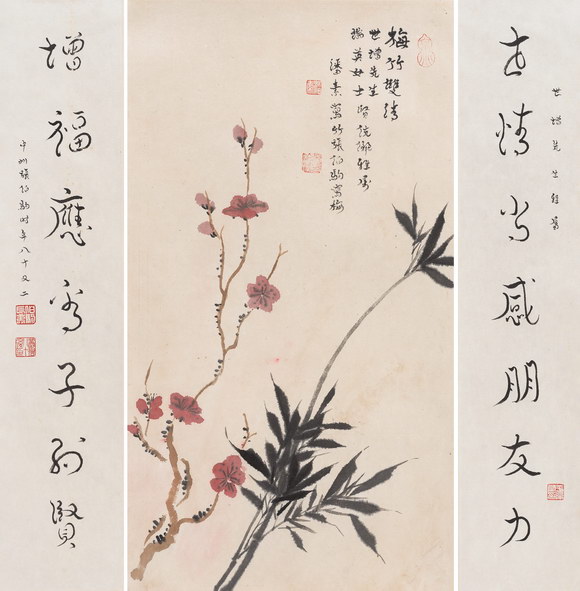 世情当感朋友力
世增先生雅屬
梅竹雙清
世增先生
英女士賢伉儷雅屬
潘素寫竹張伯駒寫梅
增福應為子孫賢
中州張伯駒時年八十又二